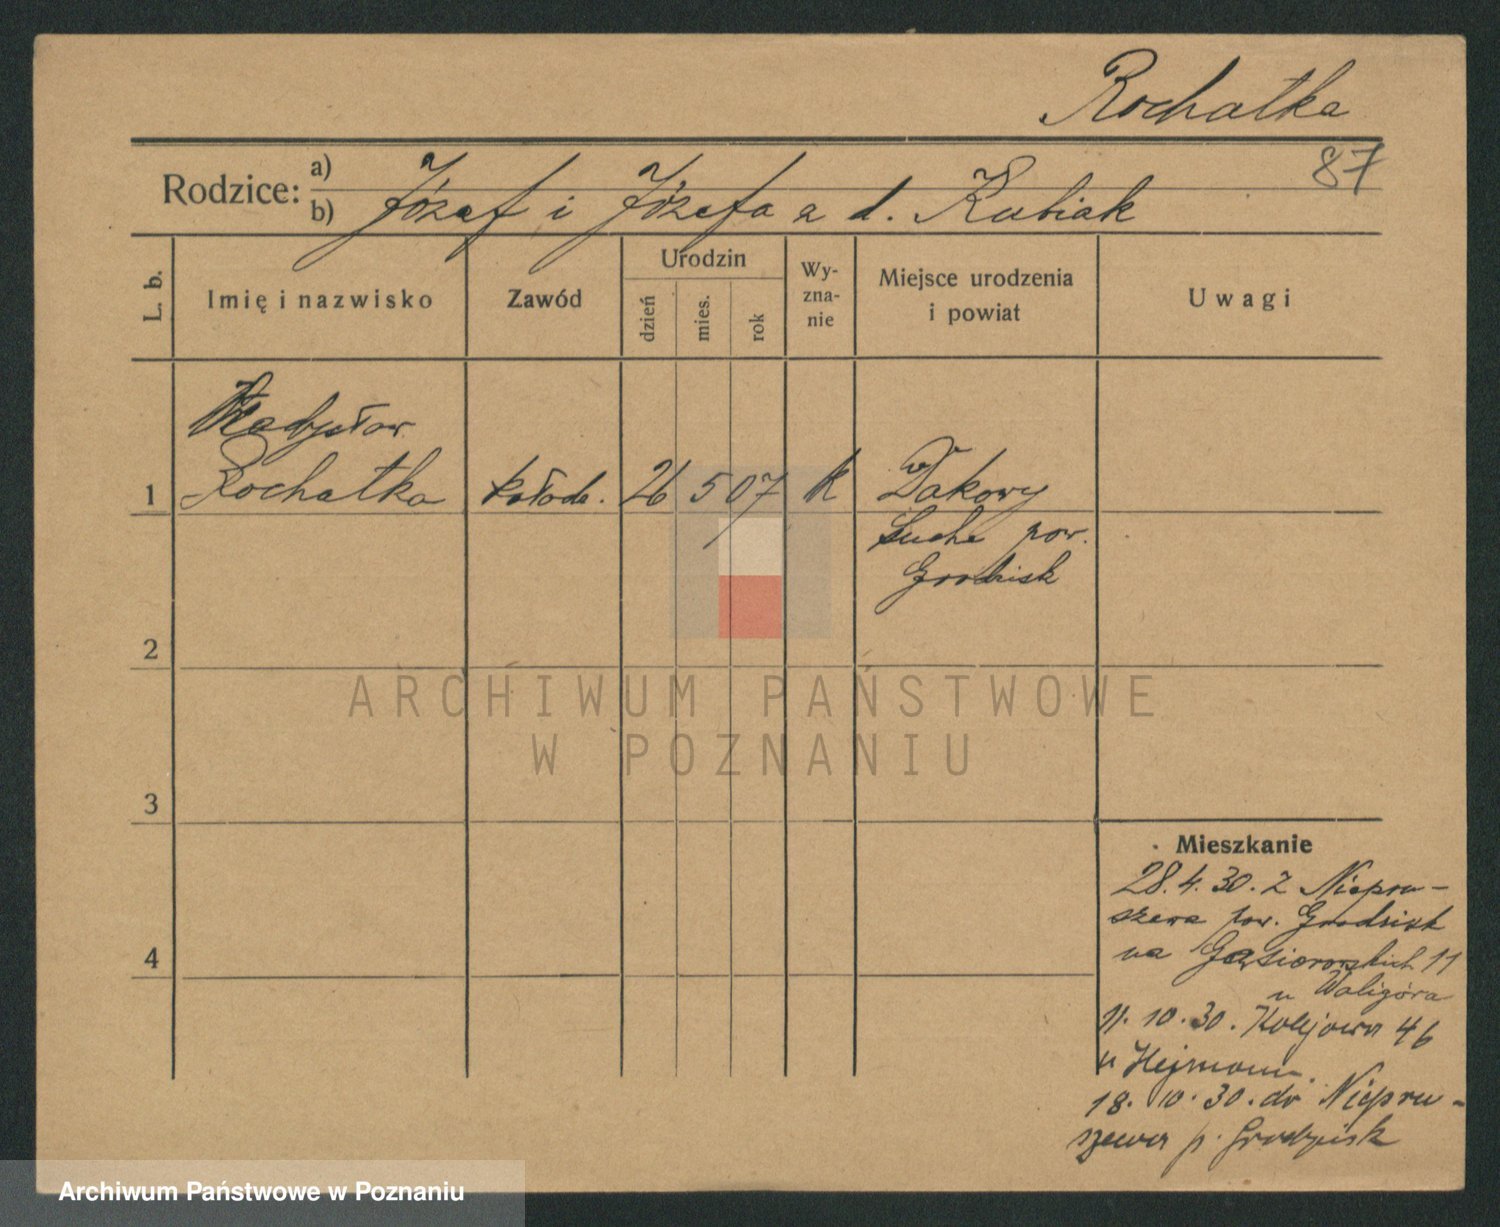 Rochatka
87
Rodzice: a)
b) Józef i Józefa z d. Kubiak
L. b.
Imię i nazwisko
Zawód
Urodzin
dzień
mies.
rok
Wy-
zna-
nie
Miejsce urodzenia
i powiat
Uwagi
Władysław
1 Rochatka kołodz. 26 5 07 k Dakowy
Suche pow.
Grodzisk
2
3
4
ARCHIWUM PAŃSTWOWE
W POZNANIU
Mieszkanie
28.4.30. z Niepru-
szewa pow. Grodzisk
na Gąsiorowskich 11
u Waligóra
11.10.30. Kolejowa 46
u Hejmann.
18.10.30. do Niepru-
szewa p. Grodzisk
Archiwum Państwowe w Poznaniu